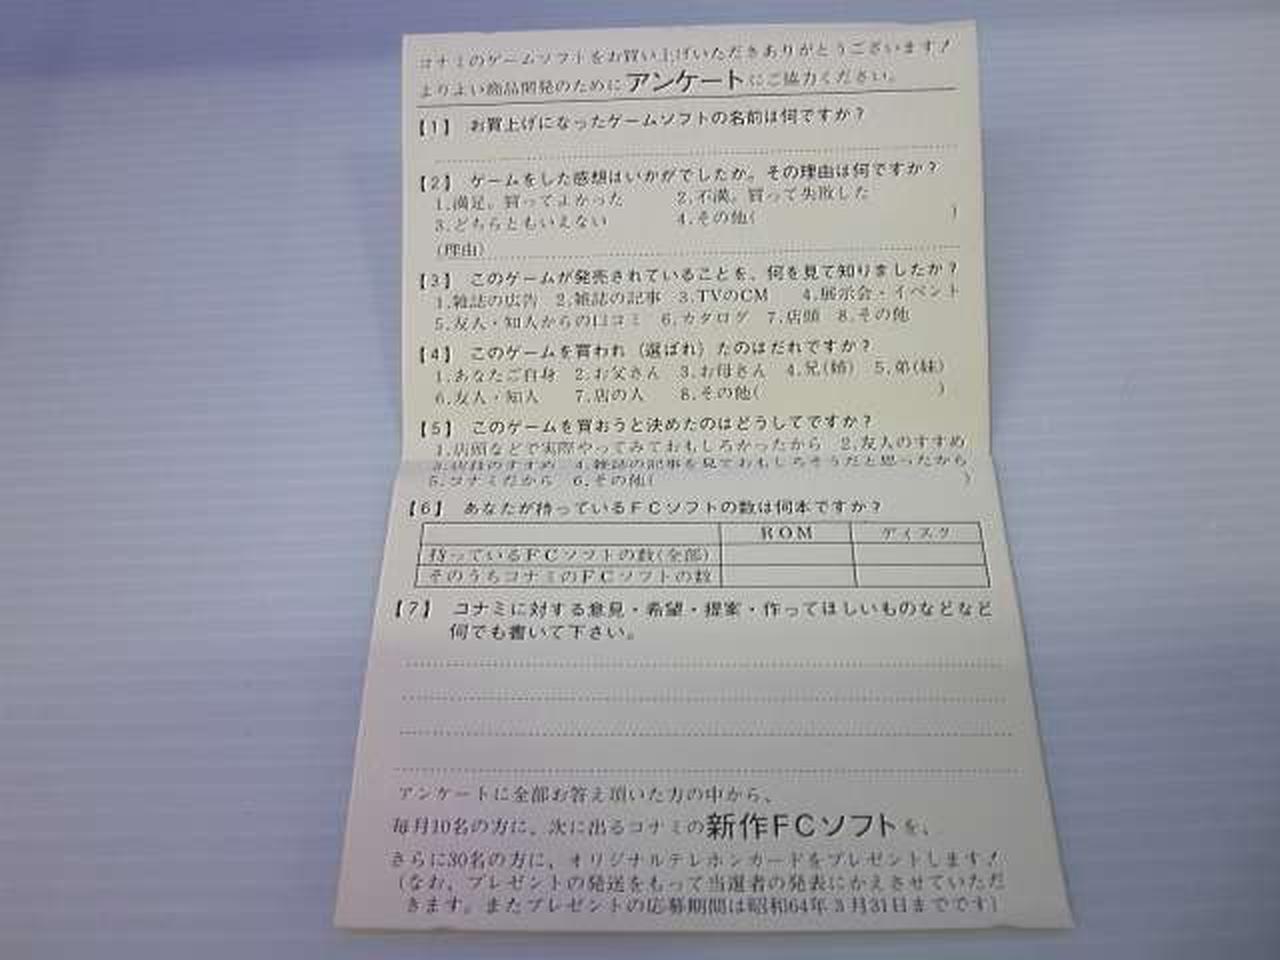 コナミのゲームソフトをお買い上げいただきありがとうございます!
よりよい商品開発のためにアンケートにご協力ください。
【1】 お買上げになったゲームソフトの名前は何ですか?
【2】 ゲームをした感想はいかがでしたか。その理由は何ですか?
1.満足。買ってよかった 2.不満。買って失敗した
3.どちらともいえない 4.その他( )
(理由)
【3】 このゲームが発売されていることを、何を見て知りましたか?
1.雑誌の広告 2.雑誌の記事 3.TVのCM 4.展示会・イベント
5.友人・知人からの口コミ 6.カタログ 7.店頭 8.その他
【4】 このゲームを買われ(選ばれ)たのはだれですか?
1.あなたご自身 2.お父さん 3.お母さん 4.兄(姉) 5.弟(妹)
6.友人・知人 7.店の人 8.その他( )
【5】 このゲームを買おうと決めたのはどうしてですか?
1.店頭などで実際やってみておもしろかったから 2.友人のすすめ
3.店員のすすめ 4.雑誌の記事を見ておもしろそうだと思ったから
5.コナミだから 6.その他( )
【6】 あなたが持っているFCソフトの数は何本ですか?
ROM ディスク
持っているFCソフトの数(全部)
そのうちコナミのFCソフトの数
【7】 コナミに対する意見・希望・提案・作ってほしいものなどなど
何でも書いて下さい。
アンケートに全部お答え頂いた方の中から、
毎月10名の方に、次に出るコナミの新作FCソフトを、
さらに30名の方に、オリジナルテレホンカードをプレゼントします!
(なお、プレゼントの発送をもって当選者の発表にかえさせていただ
きます。またプレゼントの応募期間は昭和64年3月31日までです)